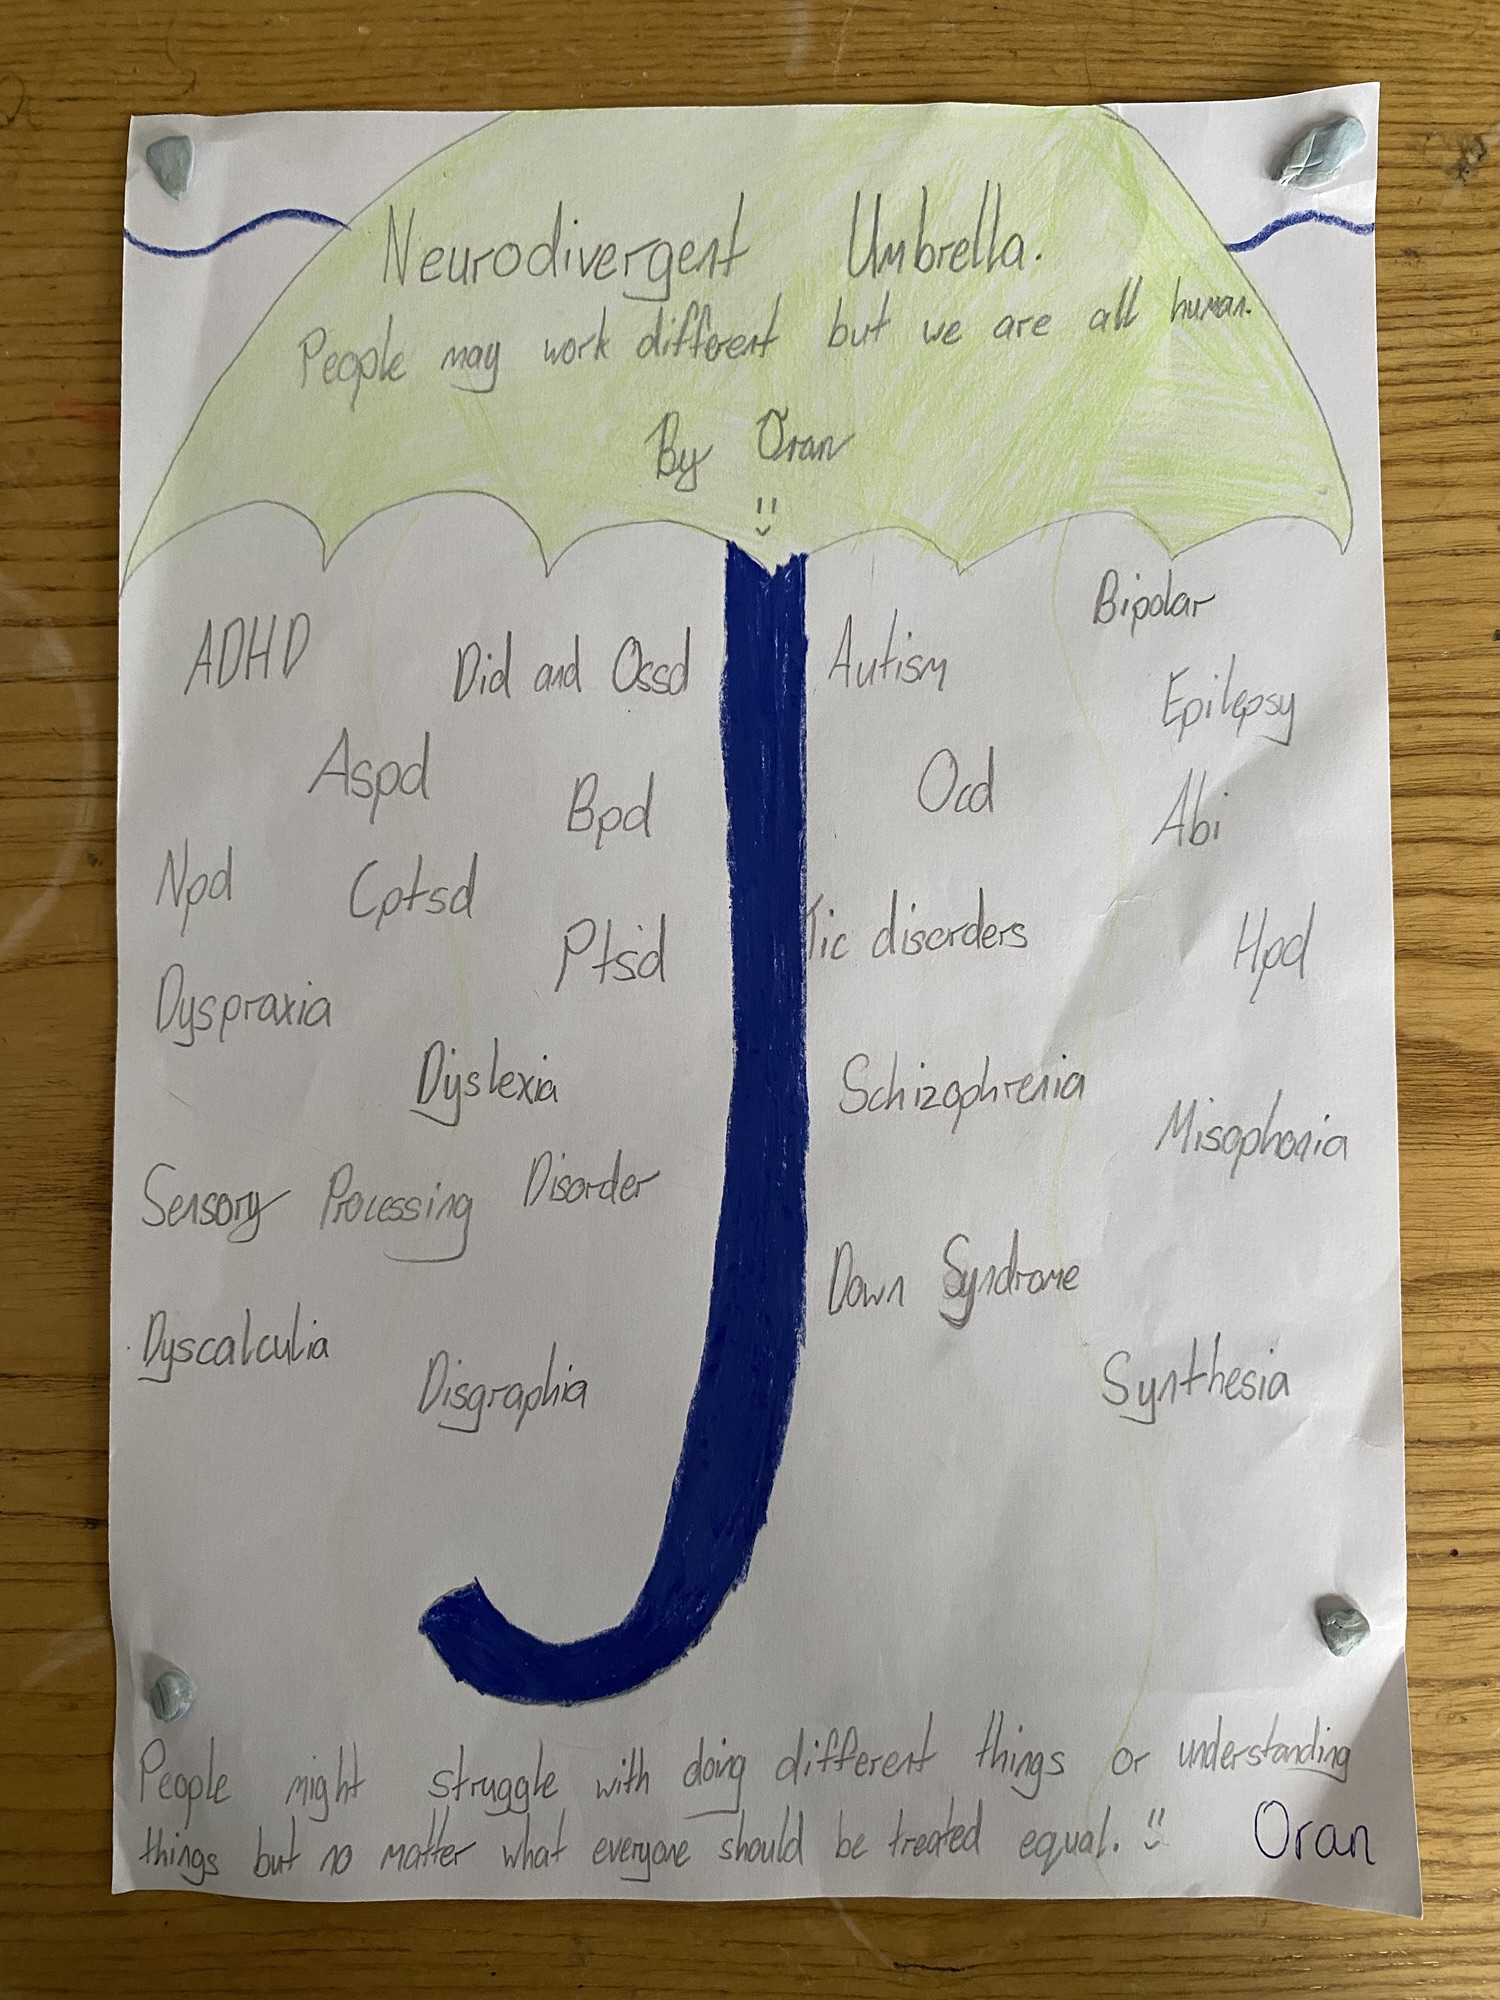 Neurodivergent Umbrella.
People may work different but we are all human.
By Oran
ADHD
Did and Ossd
Autism
Bipolar
Epilepsy
Aspd
Bpd
Ocd
Abi
Npd
Cptsd
Ptsd
Tic disorders
Hpd
Dyspraxia
Dyslexia
Schizophrenia
Misophonia
Sensory Processing Disorder
Down Syndrome
Dyscalculia
Disgraphia
Synthesia
People might struggle with doing different things or understanding
things but no matter what everyone should be treated equal. Oran